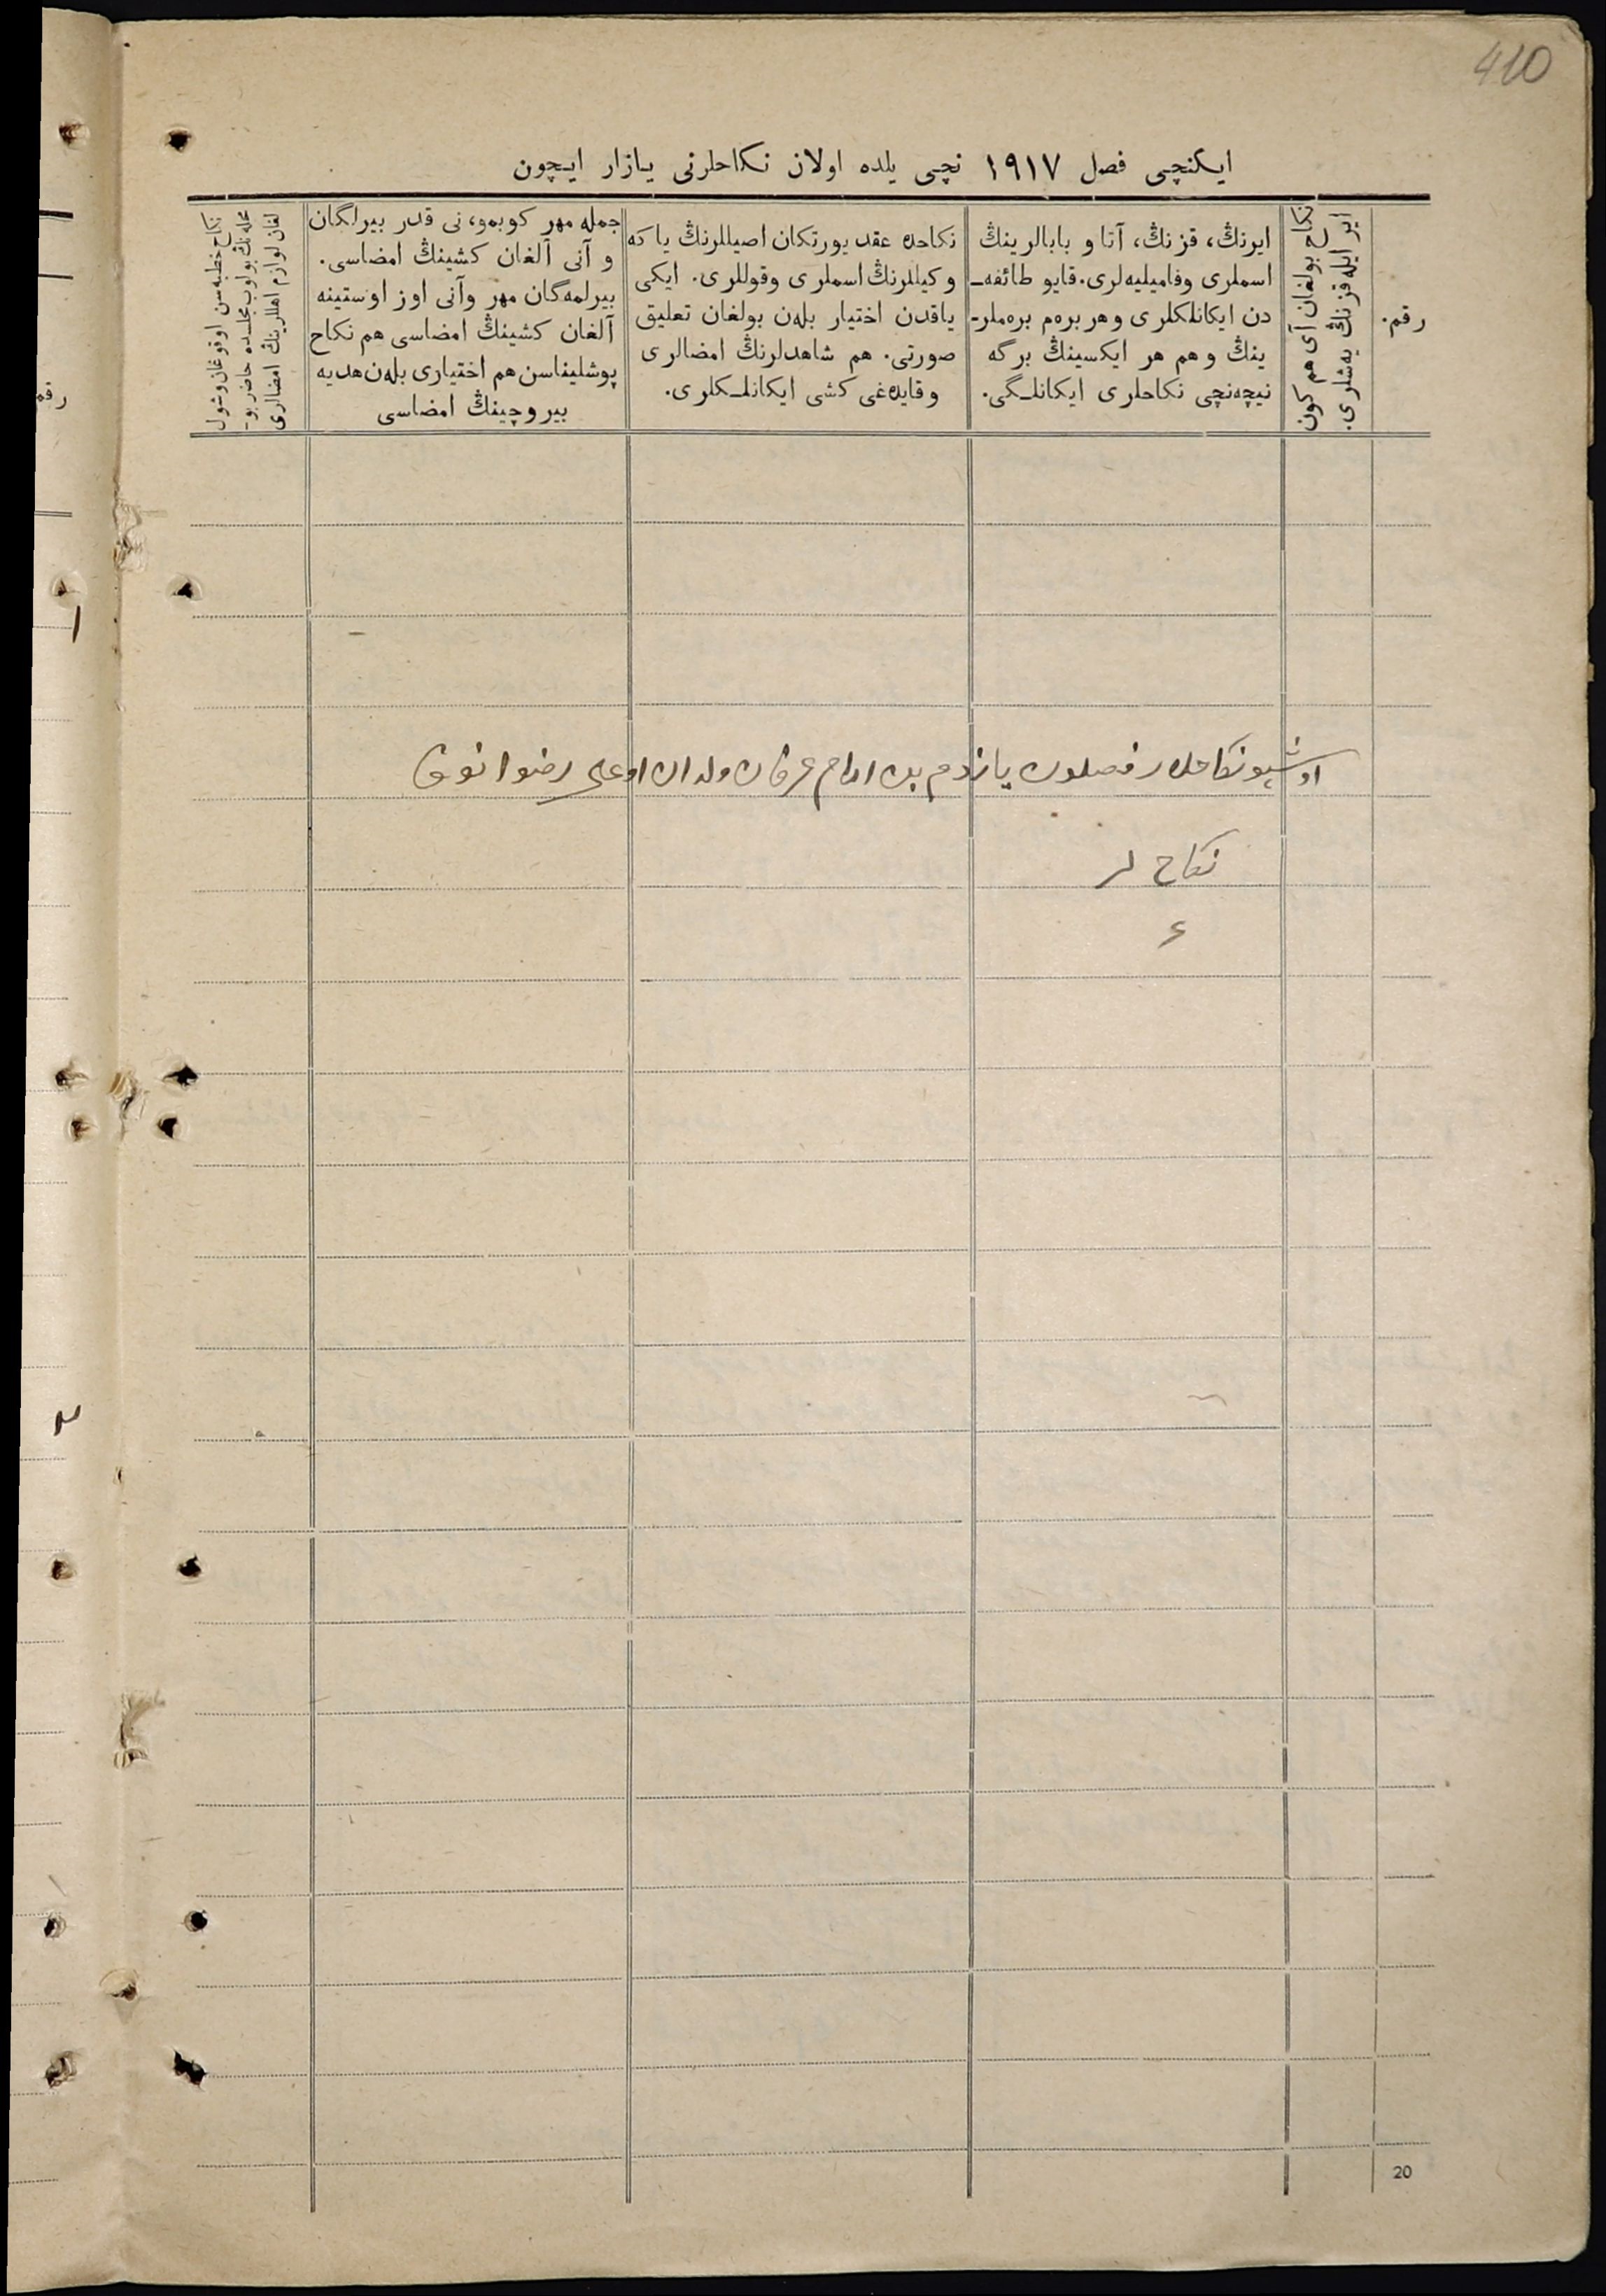 410
ایکنچی فصل ١٩١٧ نچی یلده اولان نکاحلرنی یازار ایچون
رقم.
نکاح بولغان آی هم کون
ایر ایله قزنڭ یه‌شلری.
ایرنڭ، قزنڭ، آتا و بابالرینڭ
اسملری وفامیلیه‌لری. قایو طائفه‌ـ
دن ایکانلکلری و هر بره‌م بره‌ملرـ
ینڭ و هم هر ایکسینڭ برگه
نیچه‌نچی نکاحلری ایکانلـگی.
نکاحده عقد یورتکان اصیللرنڭ یا که
وکیللرنڭ اسملری وقوللری. ایکی
یاقدن اختیار بله‌ن بولغان تعلیق
صورتی. هم شاهدلرنڭ امضالری
وقایده‌غی کشی ایکانلـکلری.
جمله مهر کوبمو، نی قدر بیرلگان
و آنی آلغان کشینڭ امضاسی.
بیرلمه‌گان مهر وآنی اوز اوستینه
آلغان کشینڭ امضاسی هم نکاح
پوشلیناسن هم اختیاری بله‌ن هدیه
بیروچینڭ امضاسی
نکاح خطبه‌سن اوقوغان وشول
محله‌نڭ بولوب مجلسده حاضر بوـ
لغان لوازم اهللرینڭ امضالری
اوشبو نکاحلار فصلون یازدم بن امام عرفان ولدان اوعلی رضوانوف
نکاح لر
ع
20
رقم
١
٢